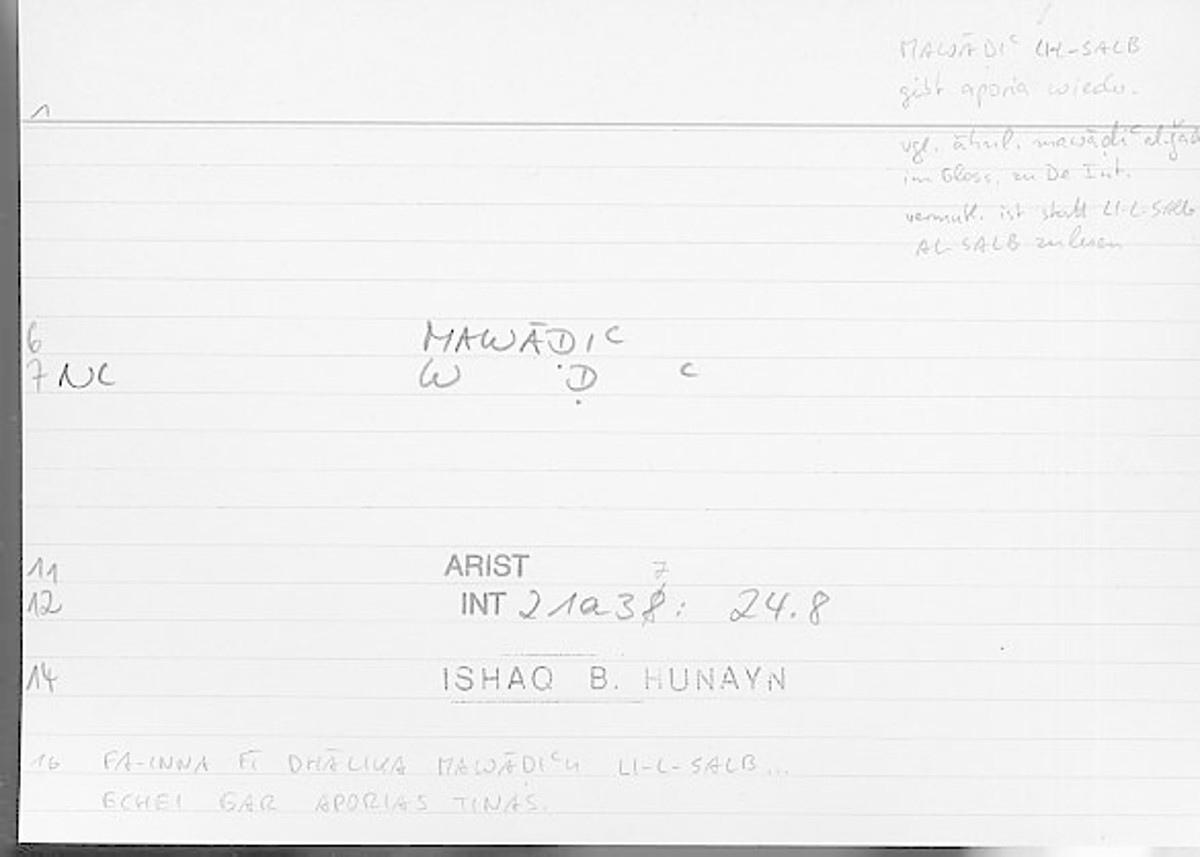 MAWĀDIᶜ LI-L-SALB
gibt aporia wieder.
1
vgl. ähnl. mawāḍiᶜ
im Gloss. zu De Int.
vermutl. ist statt LI-L-SALB
AL-SALB zu lesen
6 MAWĀDIᶜ
7 NC W Ḍ ᶜ
11 ARIST
7
12 INT 21a38: 24.8
14 ISHAQ B. HUNAYN
16 FA-INNA FĪ DHĀLIKA MAWĀDIᶜU LI-L-SALB...
ECHEI GAR APORIAS TINAS.